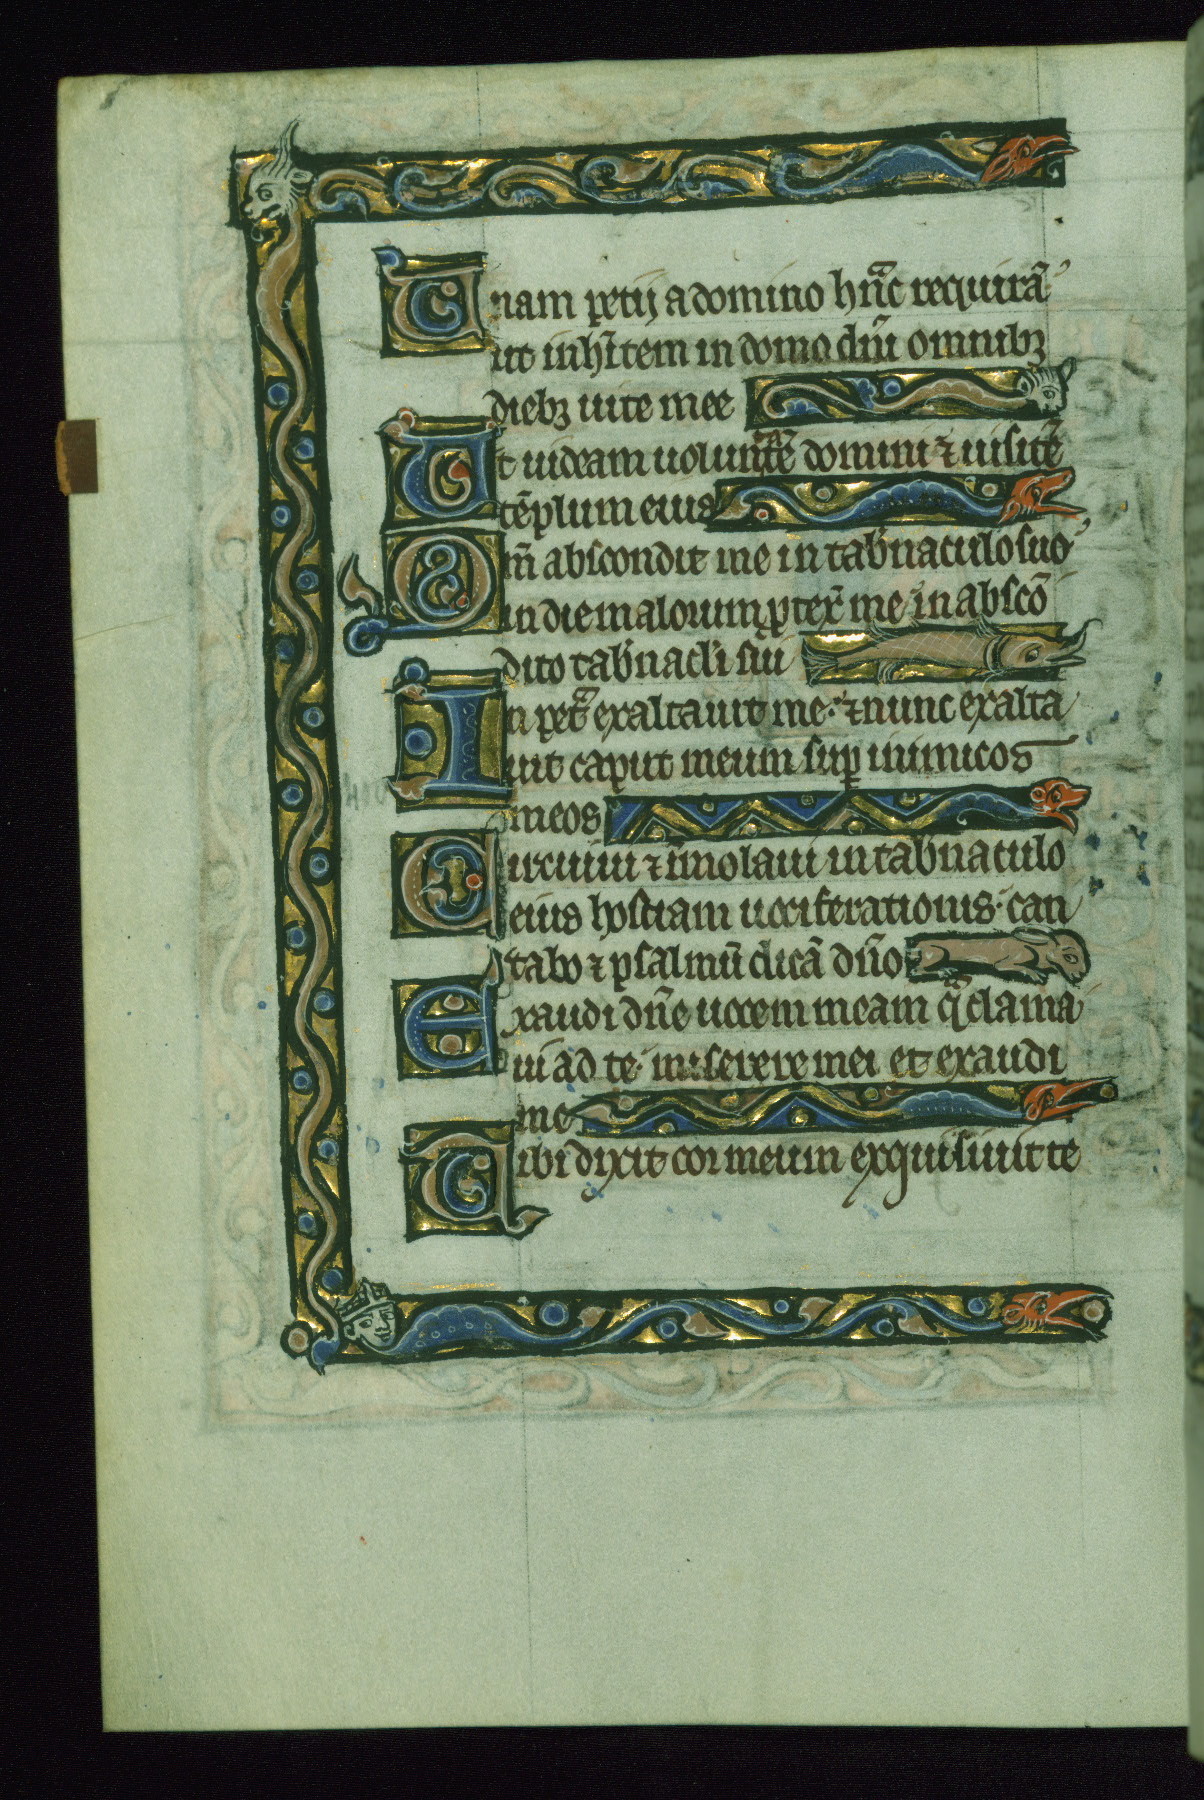 Unam petij a domino hãc requirã
ut inhĩtem in domo dñi omnibꝫ
diebꝫ uite mee
Ut uideam uolunᵃtẽ domini ⁊ uisitẽ
tẽplum eius
Qm̃ abscondit me in tab̾naculo suo
in die malorum ꝓtex̃ me in abscõ
dito tab̾nacl̾i sui
In petᵃ exaltauit me· ⁊ nunc exalta
uit caput meum suꝑ inimicos
meos
Circuiui ⁊ ĩmolaui in tab̾naculo
eius hostiam uociferationis· can
tabo ⁊ psalmũ dicã dño
Exaudi dñe uocem meam qᵃ clama
ui ad te· miserere mei et exaudi
me
Tibi dixit cor meum exquisiuit te